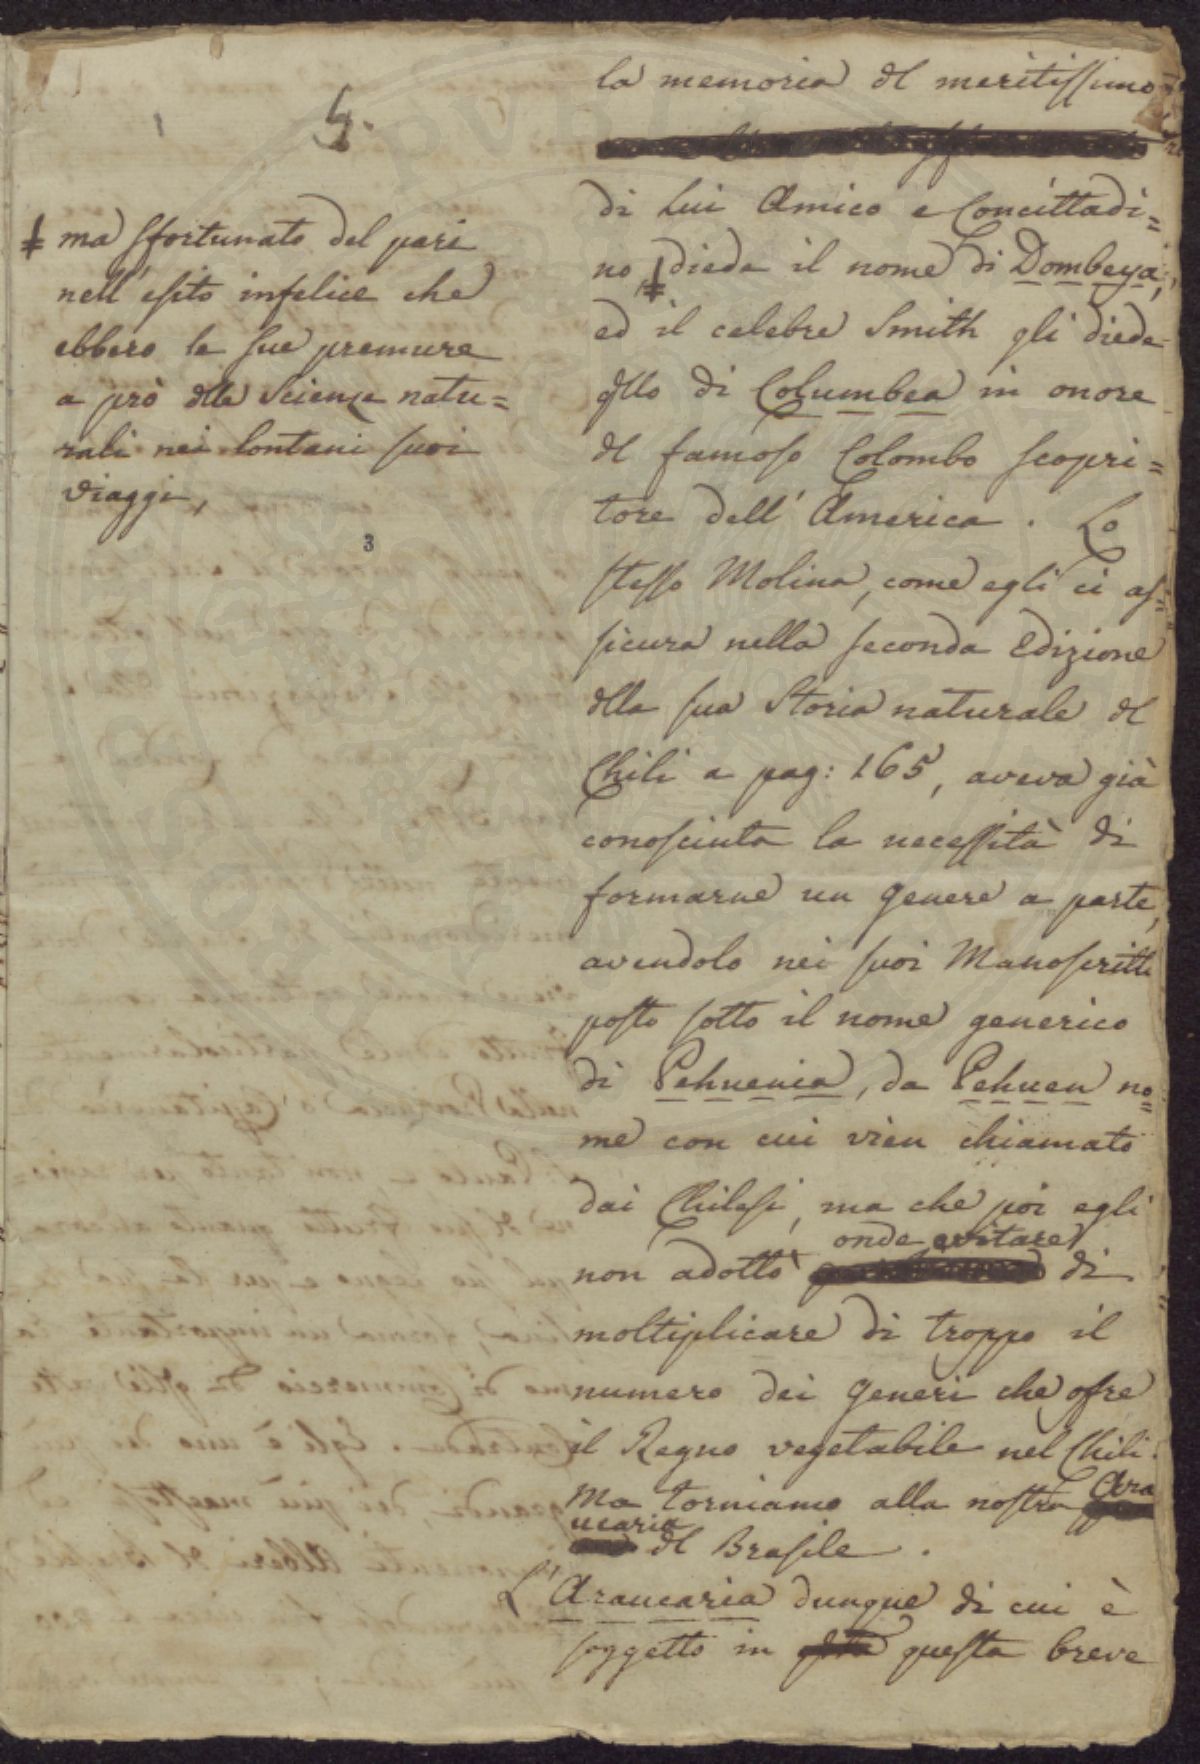 5.
la memoria dl meritissimo
di Lui Amico e Concittadi=
no ‡ diede il nome di Dombeya,
ed il celebre Smith gli diede
qllo di Columbea in onore
dl famoso Colombo scopri=
tore dell' America . Lo
stesso Molina, come egli ci as=
sicura nella seconda Edizione
dlla sua Storia naturale dl
Chili a pag: 165, aveva già
conosciuta la necessità di
formarne un genere a parte,
avendolo nei suoi Manoscritti
posto sotto il nome generico
di Pehuenia, da Pehuen no=
me con cui vien chiamato
dai Chilesi, ma che poi egli
onde evitare
non adottò di
moltiplicare di troppo il
numero dei generi che ofre
il Regno vegetabile nel Chili.
Ma torniamo alla nostra Ara
ucaria dl Brasile .
L' Araucaria dunque di cui è
soggetto in questa breve
‡ ma sfortunato del pari
nell' esito infelice che
ebbero le sue premure
a prò dlle Scienze natu=
rali nei lontani suoi
viaggi,
3